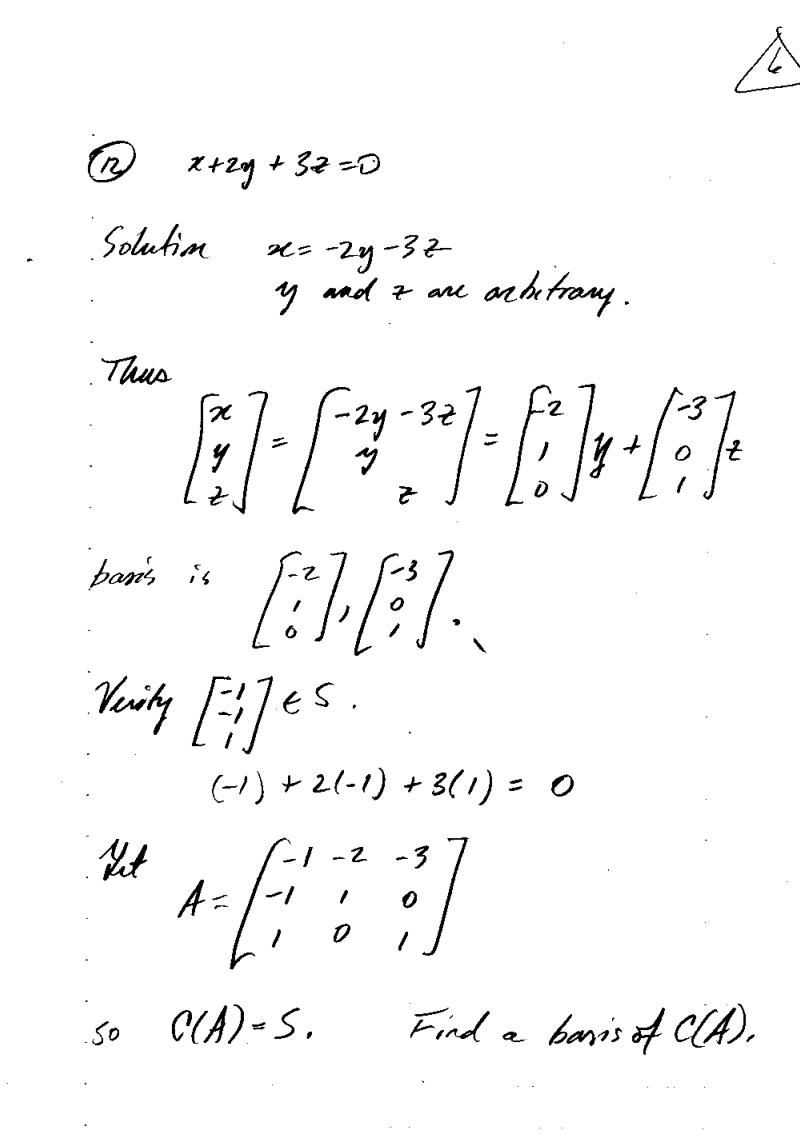 6
12 x+2y+3z=0
Solution x=-2y-3z
y and z are arbitrary.
Thus
[x y z] = [-2y-3z y z] = [-2 1 0] y + [-3 0 1] z
basis is [-2 1 0], [-3 0 1].
Verify [-1 -1 1] ∈ S.
(-1) + 2(-1) + 3(1) = 0
Let A = [-1 -2 -3
-1 1 0
1 0 1]
so C(A)=S. Find a basis of C(A).